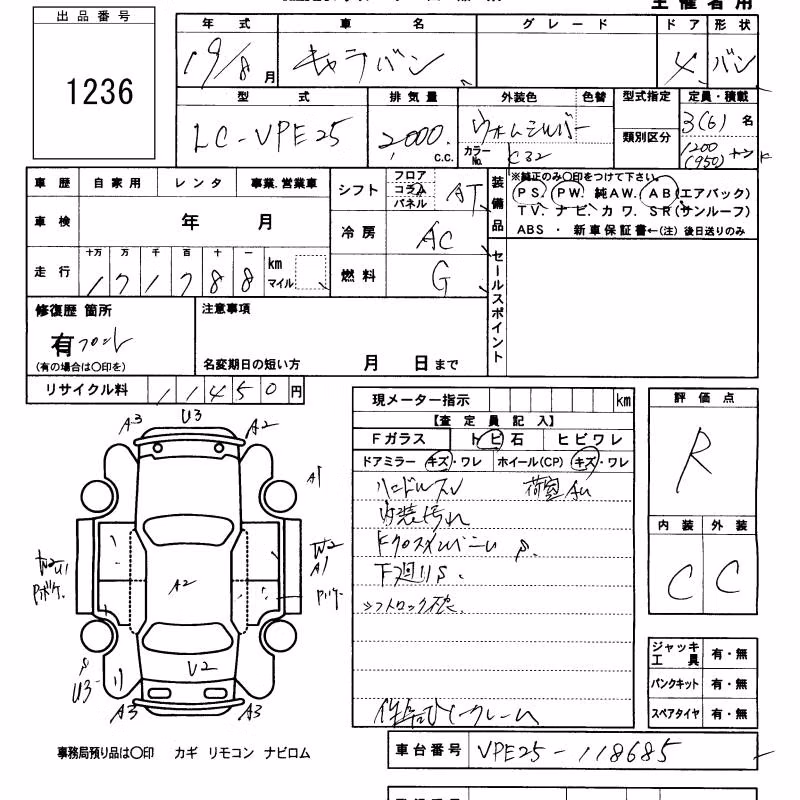 主催者用
出品番号
1236
年式 車名 グレード ドア 形状
19/8月 キャラバン 4 バン
型式 排気量 外装色 色替 型式指定 定員・積載
LC-VPE25 2,000 c.c. ウォームシルバー 類別区分 3(6)名
カラーNo. C32 1200(950)
車歴 自家用 レンタ 事業.営業車
シフト フロア コラム パネル AT
車検 年 月
冷房 AC
走行 十万 万 千 百 十 一
171788 km マイル
燃料 G
装備品
※純正のみ○印をつけて下さい。
PS. PW. 純AW. AB(エアバック)
TV. ナビ. カワ. SR(サンルーフ)
ABS ・ 新車保証書←(注) 後日送りのみ
セールスポイント
修復歴 箇所
有 フロント
(有の場合は○印を)
注意事項
名変期日の短い方 月 日まで
リサイクル料 11450円
現メーター指示 km
【査定員記入】
Fガラス トビ石 ヒビワレ
ドアミラー キズ・ワレ ホイール(CP) キズ・ワレ
ハンドルスレ 荷室AU
内装汚れ
Fクロスメンバー S.
下廻りS.
シフトロック不良
評価点
R
内装 外装
C C
A3 U3 A2
A1
W2 U1 W2
A1
A2
U2
S
U3
A3 A3
ジャッキ工具 有・無
パンクキット 有・無
スペアタイヤ 有・無
事務局預り品は○印 カギ リモコン ナビロム
車台番号 VPE25-118685